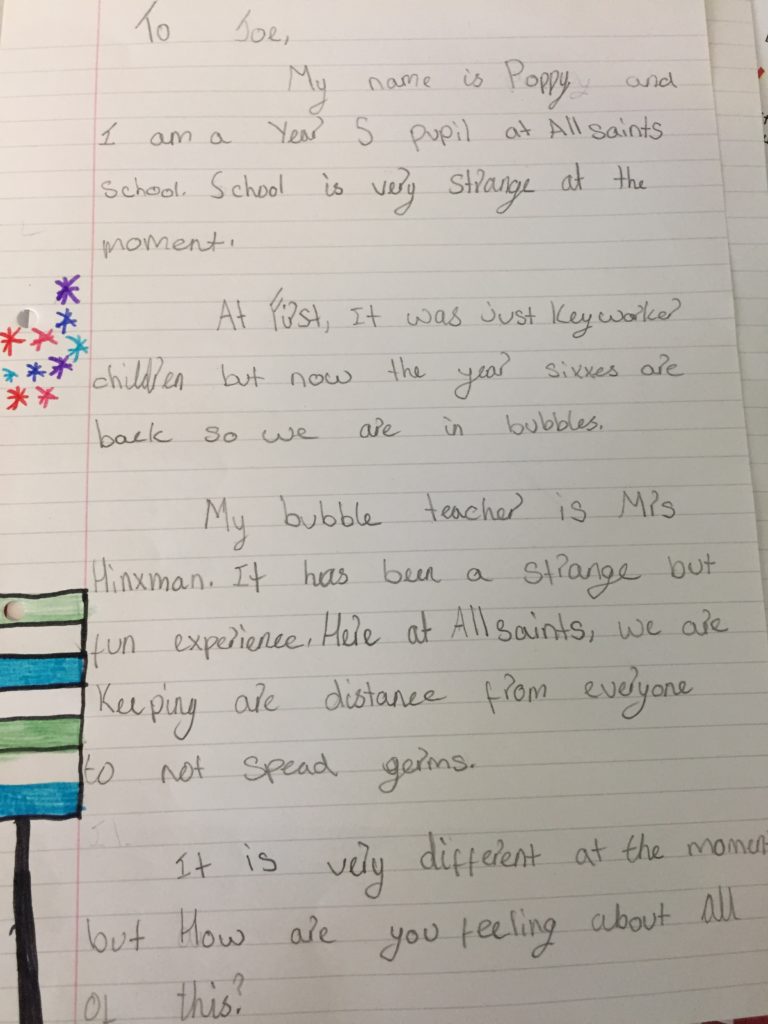 To Joe,
My name is Poppy and
I am a Year 5 pupil at All saints
School. School is very strange at the
moment.
At first, It was just Keyworker
children but now the year sixxes are
back so we are in bubbles.
My bubble teacher is Mrs
Hinxman. It has been a strange but
fun experience. Here at All saints, we are
Keeping are distance from everyone
to not spead germs.
It is very different at the momen
but How are you feeling about all
of this?